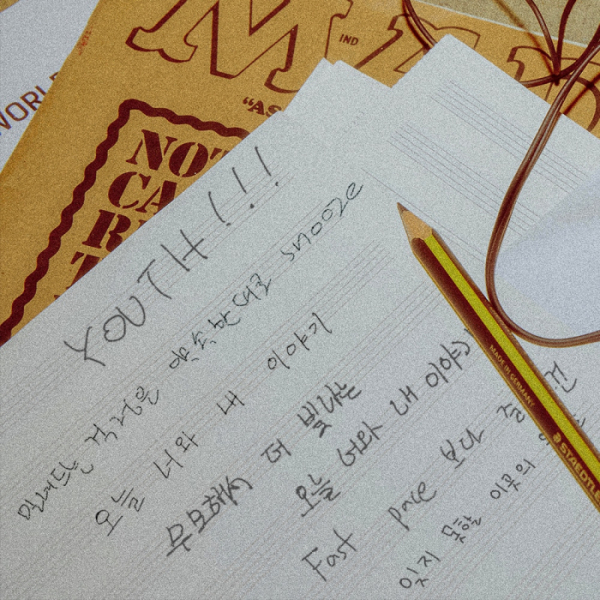 WORLD
IND
"AS
NOT
CA
YOUTH!!!
밀려드는 걱정은 약속한대로 snooze
오늘 너와 내 이야기
무모해서 더 빛나는
오늘 너와 내 이야기
Fast pace 보다
잊지 못할 이곳의
MADE IN GERMANY
STAEDTLE